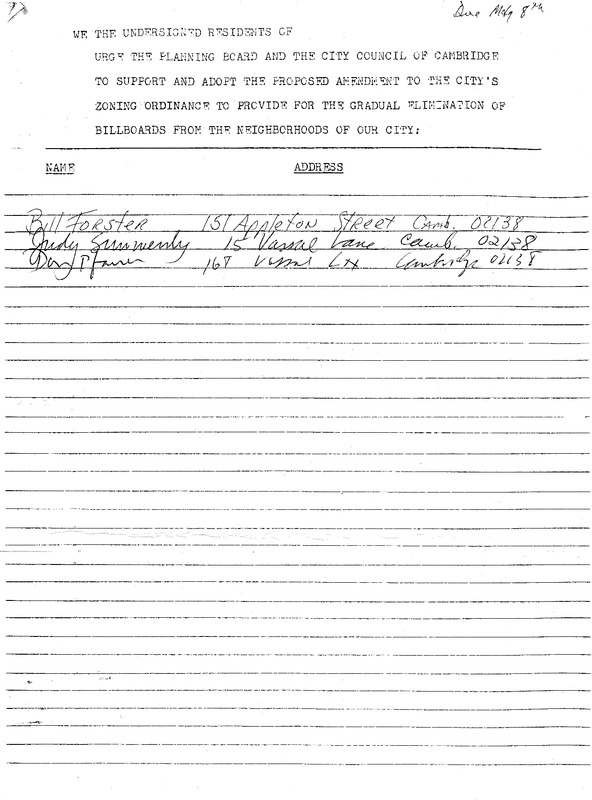 Due May 8th
WE THE UNDERSIGNED RESIDENTS OF
URGE THE PLANNING BOARD AND THE CITY COUNCIL OF CAMBRIDGE
TO SUPPORT AND ADOPT THE PROPOSED AMENDMENT TO THE CITY'S
ZONING ORDINANCE TO PROVIDE FOR THE GRADUAL ELIMINATION OF
BILLBOARDS FROM THE NEIGHBORHOODS OF OUR CITY:
NAME ADDRESS
Bill Forster 151 Appleton Street Camb. 02138
Judy 15 Vassal Lane Camb. 02138
168 Vassal Ln Cambridge 02138